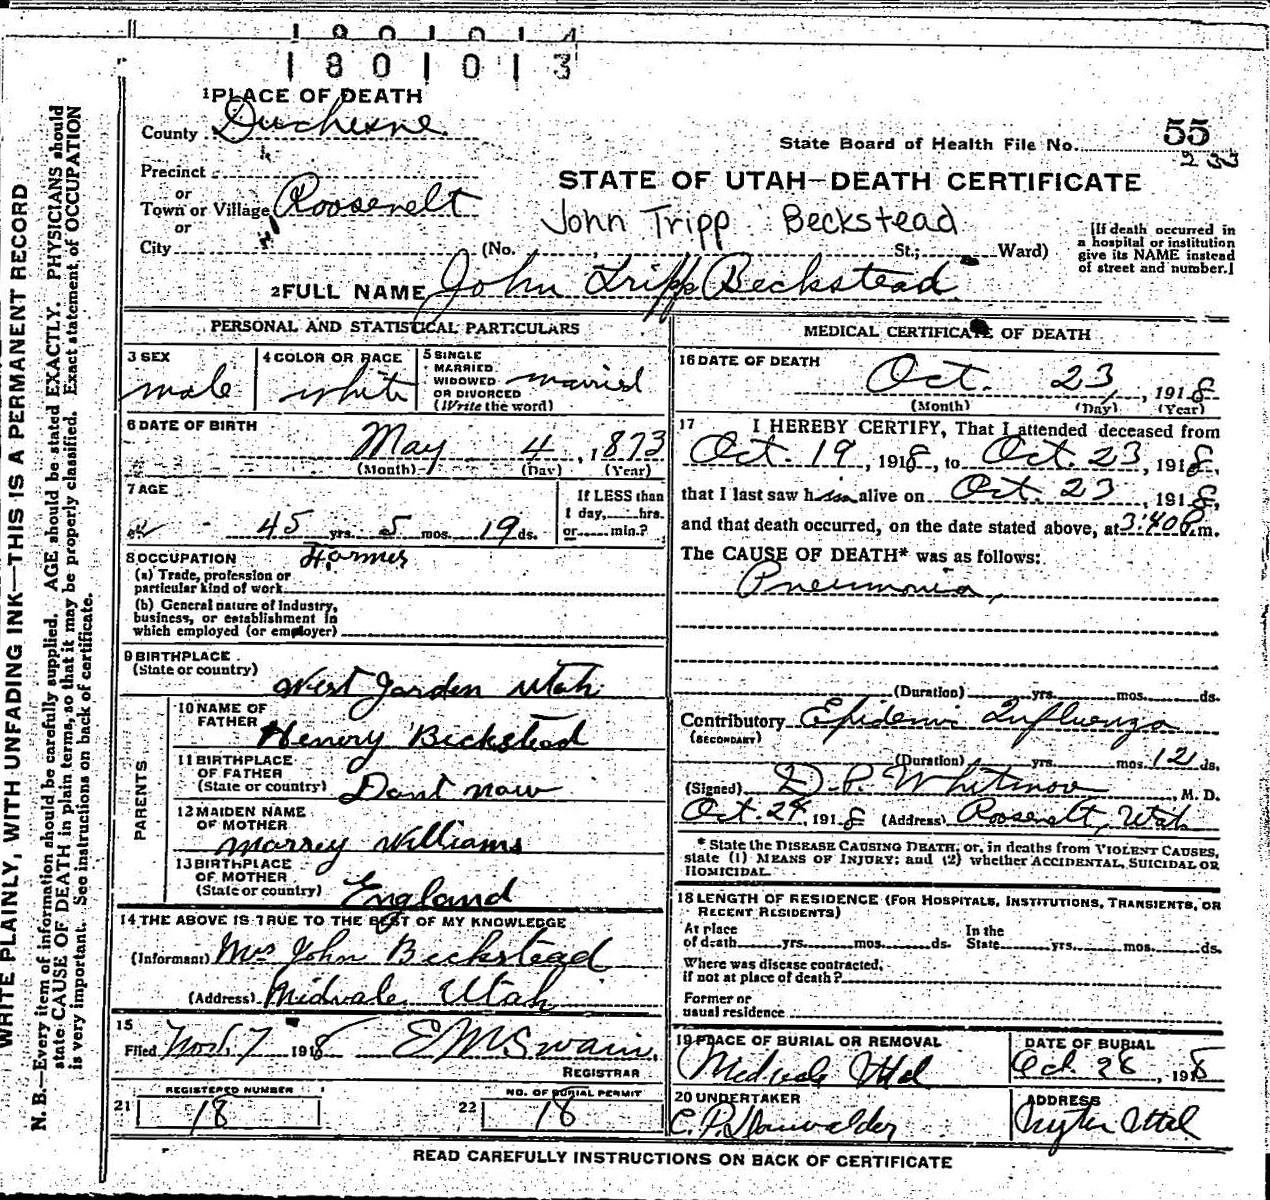 1801014
1801013
1 PLACE OF DEATH
County Duchesne
State Board of Health File No. 55
233
Precinct
or
Town or Village Roosevelt
or
City
STATE OF UTAH—DEATH CERTIFICATE
John Tripp Beckstead
(No. St.; Ward)
[If death occurred in
a hospital or institution
give its NAME instead
of street and number.]
2 FULL NAME John Tripp Beckstead
PERSONAL AND STATISTICAL PARTICULARS
3 SEX
male
4 COLOR OR RACE
white
5 SINGLE
MARRIED
WIDOWED
OR DIVORCED
(Write the word)
married
6 DATE OF BIRTH
May 4, 1873
(Month) (Day) (Year)
7 AGE
45 yrs. 5 mos. 19 ds.
If LESS than
1 day, hrs.
or min.?
8 OCCUPATION Farmer
(a) Trade, profession or
particular kind of work
(b) General nature of industry,
business, or establishment in
which employed (or employer)
9 BIRTHPLACE
(State or country) West Jorden Utah
PARENTS
10 NAME OF
FATHER Henery Beckstead
11 BIRTHPLACE
OF FATHER
(State or country) Dont now
12 MAIDEN NAME
OF MOTHER
Marrey Williams
13 BIRTHPLACE
OF MOTHER
(State or country) England
14 THE ABOVE IS TRUE TO THE BEST OF MY KNOWLEDGE
(Informant) Mrs John Beckstead
(Address) Midvale, Utah
15
Filed Nov. 7 1918 E M Swain,
REGISTRAR
REGISTERED NUMBER
21 18
NO. OF BURIAL PERMIT
22 18
MEDICAL CERTIFICATE OF DEATH
16 DATE OF DEATH
Oct. 23, 1918
(Month) (Day) (Year)
17 I HEREBY CERTIFY, That I attended deceased from
Oct. 19, 1918, to Oct. 23, 1918,
that I last saw him alive on Oct. 23, 1918,
and that death occurred, on the date stated above, at 3:40 P m.
The CAUSE OF DEATH* was as follows:
Pneumonia,
(Duration) yrs. mos. ds.
Contributory Epidemic Influenza
(SECONDARY)
(Duration) yrs. mos. 12 ds.
(Signed) D. P. Whitmore, M. D.
Oct. 24, 1918 (Address) Roosevelt, Utah
* State the DISEASE CAUSING DEATH, or, in deaths from VIOLENT CAUSES,
state (1) MEANS OF INJURY; and (2) whether ACCIDENTAL, SUICIDAL OR
HOMICIDAL.
18 LENGTH OF RESIDENCE (FOR HOSPITALS, INSTITUTIONS, TRANSIENTS, OR
RECENT RESIDENTS)
At place In the
of death yrs. mos. ds. State yrs. mos. ds.
Where was disease contracted,
if not at place of death?
Former or
usual residence
19 PLACE OF BURIAL OR REMOVAL
Midvale Utah
DATE OF BURIAL
Oct. 28, 1918
20 UNDERTAKER
C. P.
ADDRESS
Utah
READ CAREFULLY INSTRUCTIONS ON BACK OF CERTIFICATE
WRITE PLAINLY, WITH UNFADING INK—THIS IS A PERMANENT RECORD
N. B.—Every item of information should be carefully supplied. AGE should be stated EXACTLY. PHYSICIANS should
state CAUSE OF DEATH in plain terms, so that it may be properly classified. Exact statement of OCCUPATION
is very important. See instructions on back of certificate.